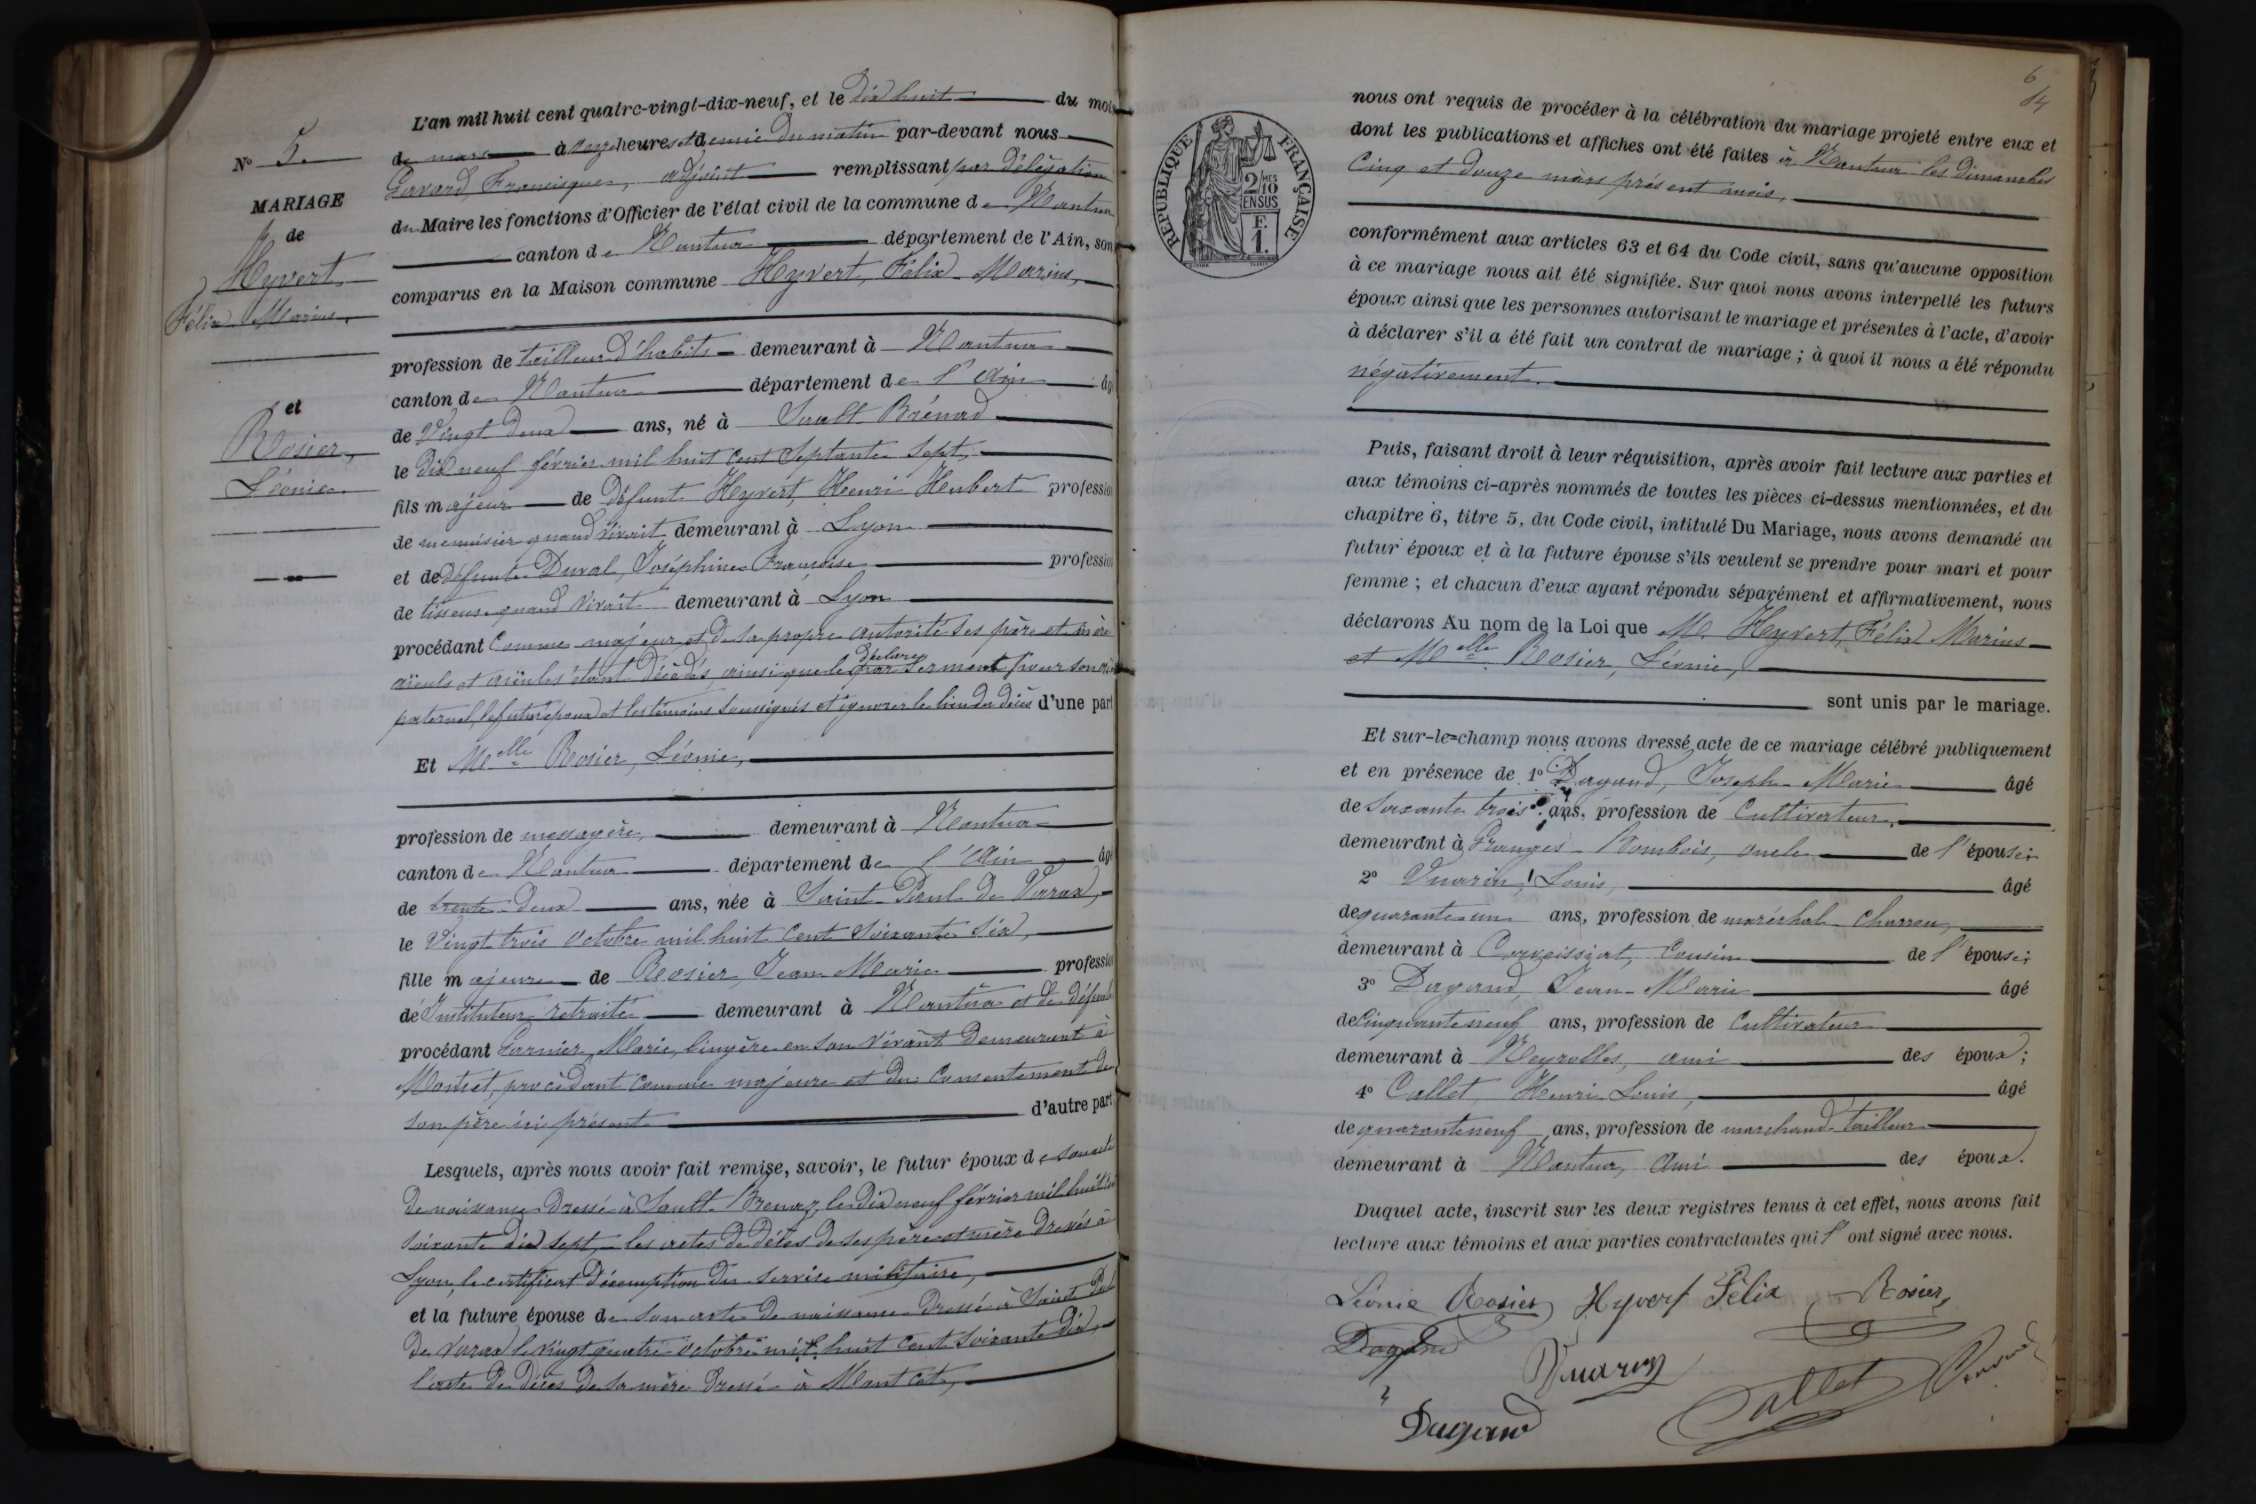 L'an mil huit cent quatre-vingt-dix-neuf, et le dix huit du mois
N° 5. de mars à onze heures et demie du matin par-devant nous
Gavard, Francisque, adjoint remplissant par délégation
MARIAGE
du Maire les fonctions d'Officier de l'état civil de la commune de Nantua
de
canton de Nantua département de l'Ain, son
Hyvert,
comparus en la Maison commune Hyvert, Félix Marius,
Félix Marius,
profession de tailleur d'habits demeurant à Nantua
canton de Nantua département de l'Ain âg
et
de Vingt deux ans, né à Sault Brénad
Rosier,
le dix neuf février mil huit cent septante sept,
Léonie.
fils majeur de défunt Hyvert, Henri Hubert profession
de menuisier quand vivait demeurant à Lyon
et de défunte Duval, Joséphine Françoise profession
de tisseuse quand vivait demeurant à Lyon
procédant comme majeur et de sa propre autorité ses père et mère
déclare
aïeuls et aïeules étant décédés, ainsi que le par serment pour son
paternel, le futur époux et les témoins soussignés et ignorer le lieu du décès d'une part
Et Melle Rosier, Léonie,
profession de messagère, demeurant à Nantua
canton de Nantua département de l'Ain âgé
de trente-deux ans, née à Saint Paul de Varax,
le vingt trois octobre mil huit cent soixante six,
fille majeure de Rosier, Jean Marie profession
de Instituteur retraité demeurant à Nantua et de défunte
procédant Garnier, Marie, lingère en son vivant demeurant à
Montcet, procédant comme majeure et du consentement de
son père ici présent d'autre part
Lesquels, après nous avoir fait remise, savoir, le futur époux de son acte
de naissance dressé à Sault-Brenaz, le dix neuf février mil huit cent
soixante dix sept, les actes de décès de ses père et mère dressés à
Lyon, le certificat d'exemption du service militaire,
et la future épouse de son acte de naissance dressé à Saint Paul
de Varax le vingt quatre octobre mil huit cent soixante six,
l'acte de décès de sa mère dressé à Montcet,
6
14
RÉPUBLIQUE FRANÇAISE
2/10 MES
EN SUS
F.
1.
nous ont requis de procéder à la célébration du mariage projeté entre eux et
dont les publications et affiches ont été faites à Nantua les dimanches
cinq et douze mars présent mois,
conformément aux articles 63 et 64 du Code civil, sans qu'aucune opposition
à ce mariage nous ait été signifiée. Sur quoi nous avons interpellé les futurs
époux ainsi que les personnes autorisant le mariage et présentes à l'acte, d'avoir
à déclarer s'il a été fait un contrat de mariage ; à quoi il nous a été répondu
négativement.
Puis, faisant droit à leur réquisition, après avoir fait lecture aux parties et
aux témoins ci-après nommés de toutes les pièces ci-dessus mentionnées, et du
chapitre 6, titre 5, du Code civil, intitulé Du Mariage, nous avons demandé au
futur époux et à la future épouse s'ils veulent se prendre pour mari et pour
femme ; et chacun d'eux ayant répondu séparément et affirmativement, nous
déclarons Au nom de la Loi que M. Hyvert, Félix Marius
et Melle Rosier, Léonie,
sont unis par le mariage.
Et sur-le-champ nous avons dressé acte de ce mariage célébré publiquement
et en présence de 1° Dagand, Joseph Marie âgé
de soixante trois ans, profession de Cultivateur,
demeurant à Granges-Rombois, oncle de l'épouse;
2° Vuarin, Louis, âgé
de quarante un ans, profession de maréchal charron,
demeurant à Corveissiat, cousin de l'épouse;
3° Dagand, Jean-Marie âgé
de cinquante neuf ans, profession de Cultivateur
demeurant à Neyrolles, ami des époux;
4° Callet, Henri Louis, âgé
de quarante neuf ans, profession de marchand tailleur
demeurant à Nantua, ami des époux.
Duquel acte, inscrit sur les deux registres tenus à cet effet, nous avons fait
lecture aux témoins et aux parties contractantes qui l'ont signé avec nous.
Léonie Rosier Hyvert Félix Rosier,
Dagand Vuarin
Dagand Callet